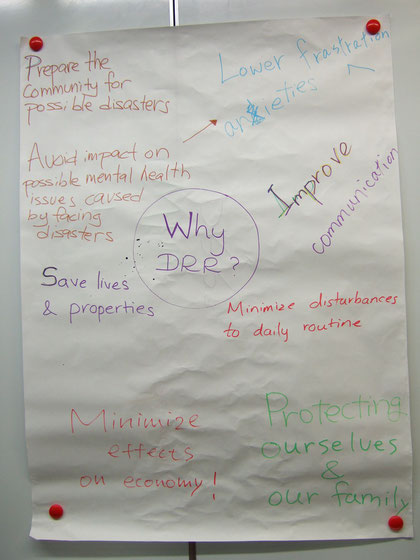 Prepare the
Community for
possible disasters
Lower frastration
anxieties
Avoid impact on
possible mental health
issues caused
by facing
disasters
Improve
communication
Why
DRR?
Save lives
& properties
Minimize disturbances
to daily routine
Minimize
effects
on economy!
Protecting
ourselves
&
our family